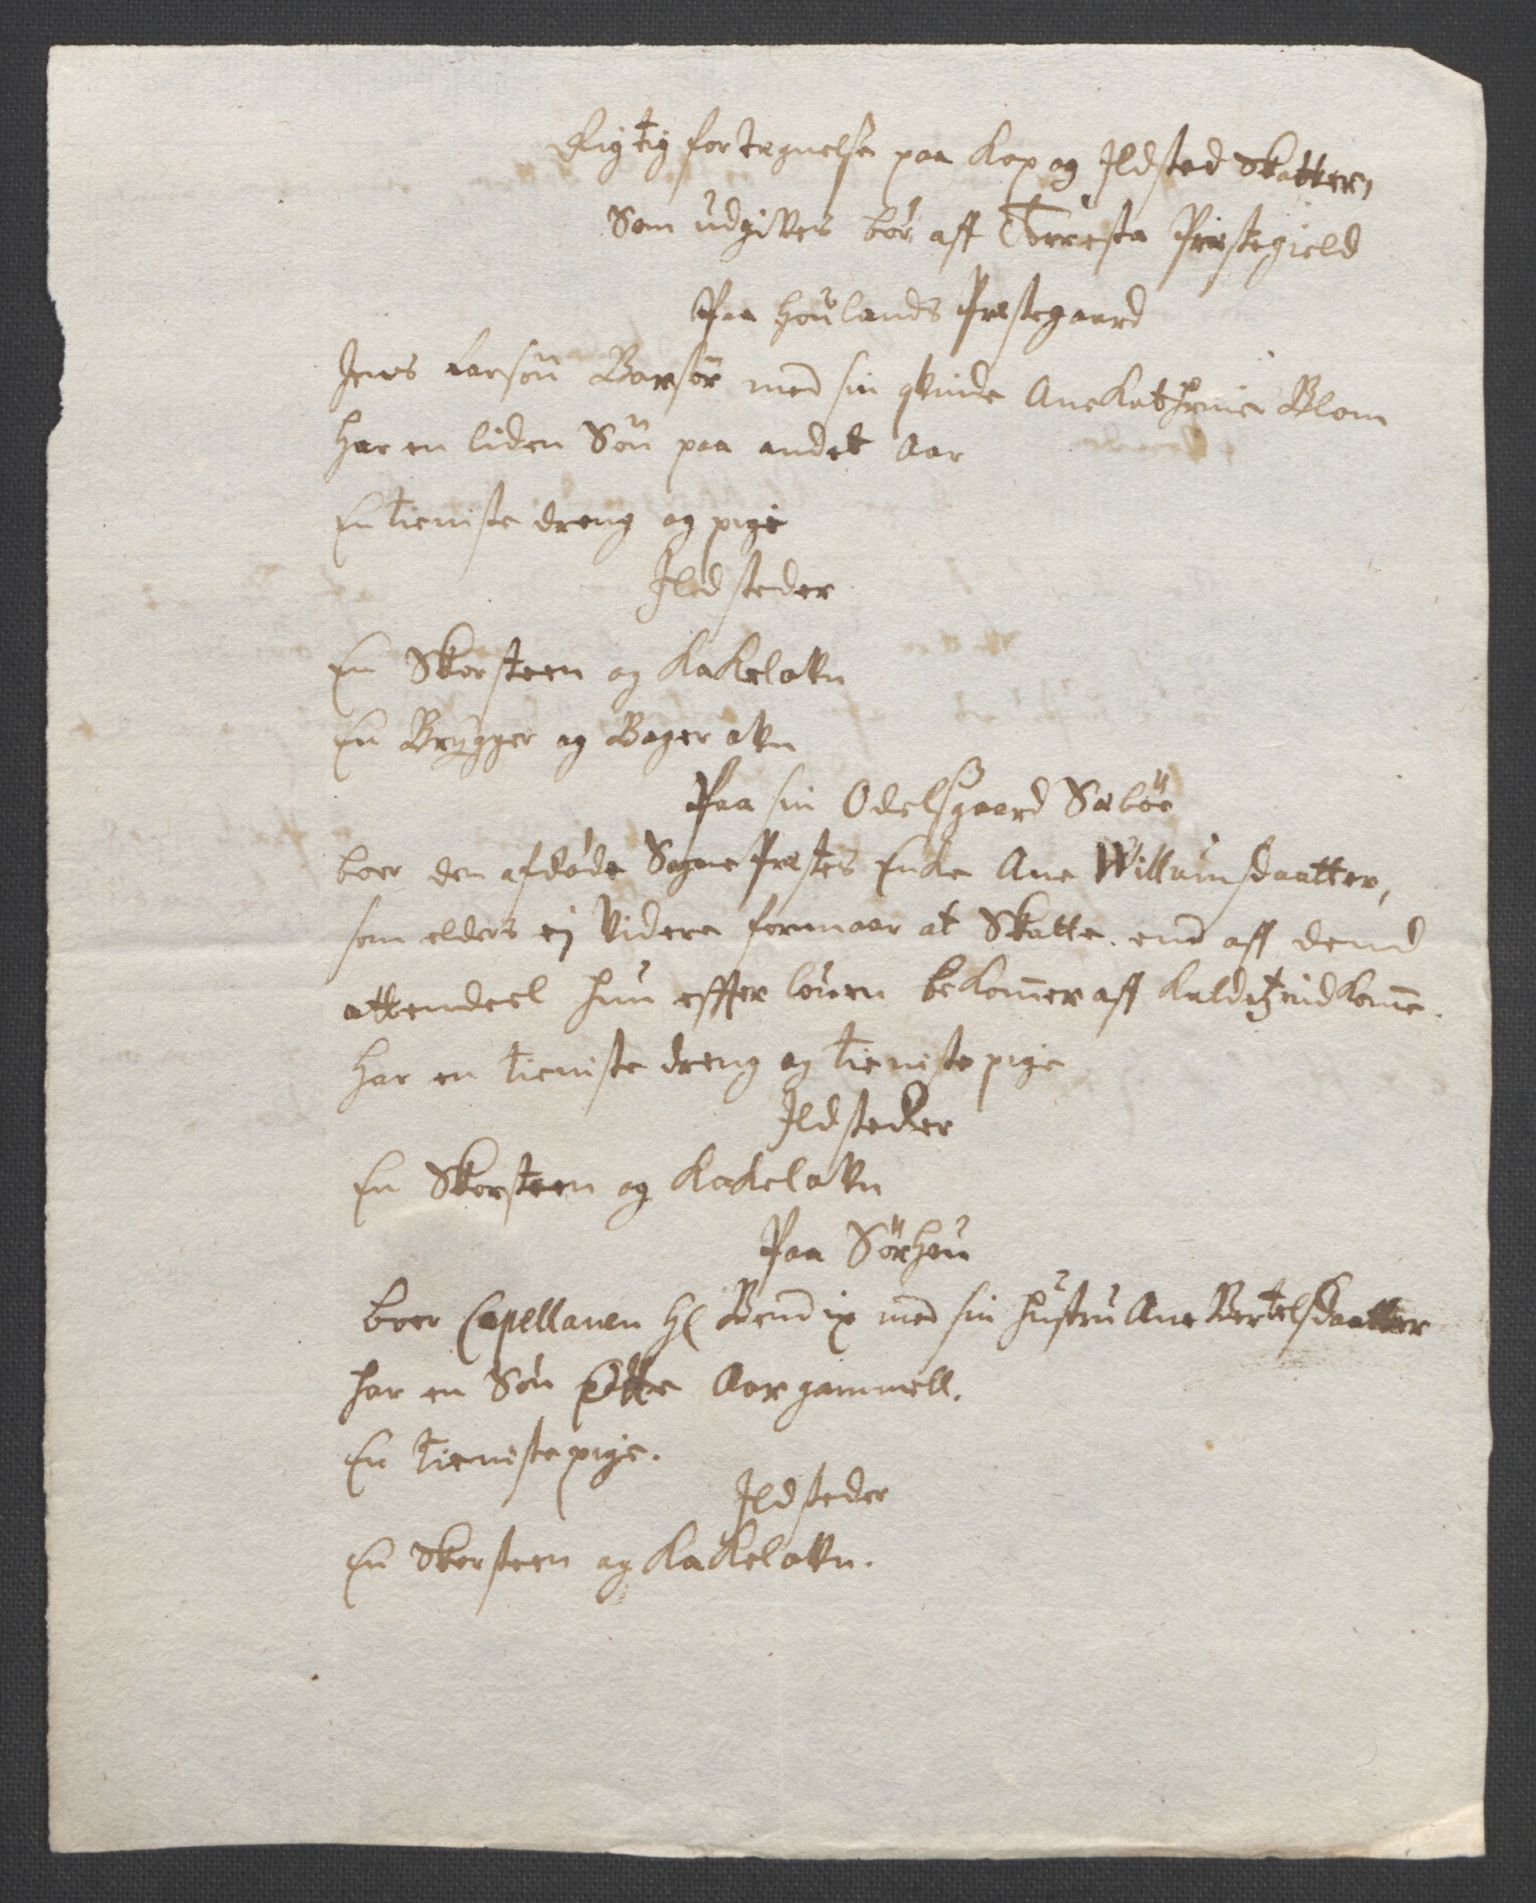 Rigtig fortegnelse paa Kop og Ildsted Skatter,
Som udgives bör aff Torresta Præstegield
Paa Houlands Præstegaard
Jens Larsön Barsör med sin qvinde Ane Kathrine Blom
har en liden Sön paa andet Aar
En tieniste dreng og pige
Ildsteder
En Skorsteen og Kakelovn
En Brygger og Bager ovn
Paa sin Odelsgaard Sæböe
boer den afdøde Sogne Præstes Enke Ane Willumsdaatter,
som elders ej videre formaar at Skatte end aff dend
attendeel hun effter louen bekommer aff Kaldetz indkomme.
har en tieniste dreng og tieniste pige
Ildsteder
En Skorsteen og Kakelovn
Paa Sörhou
boer Capellanen Hr Bendix med sin hustru Ane Bertelsdaatter
har en Sön otte Aar gammell.
En tieniste pige.
Ildsteder
En Skorsteen og Kakelovn.